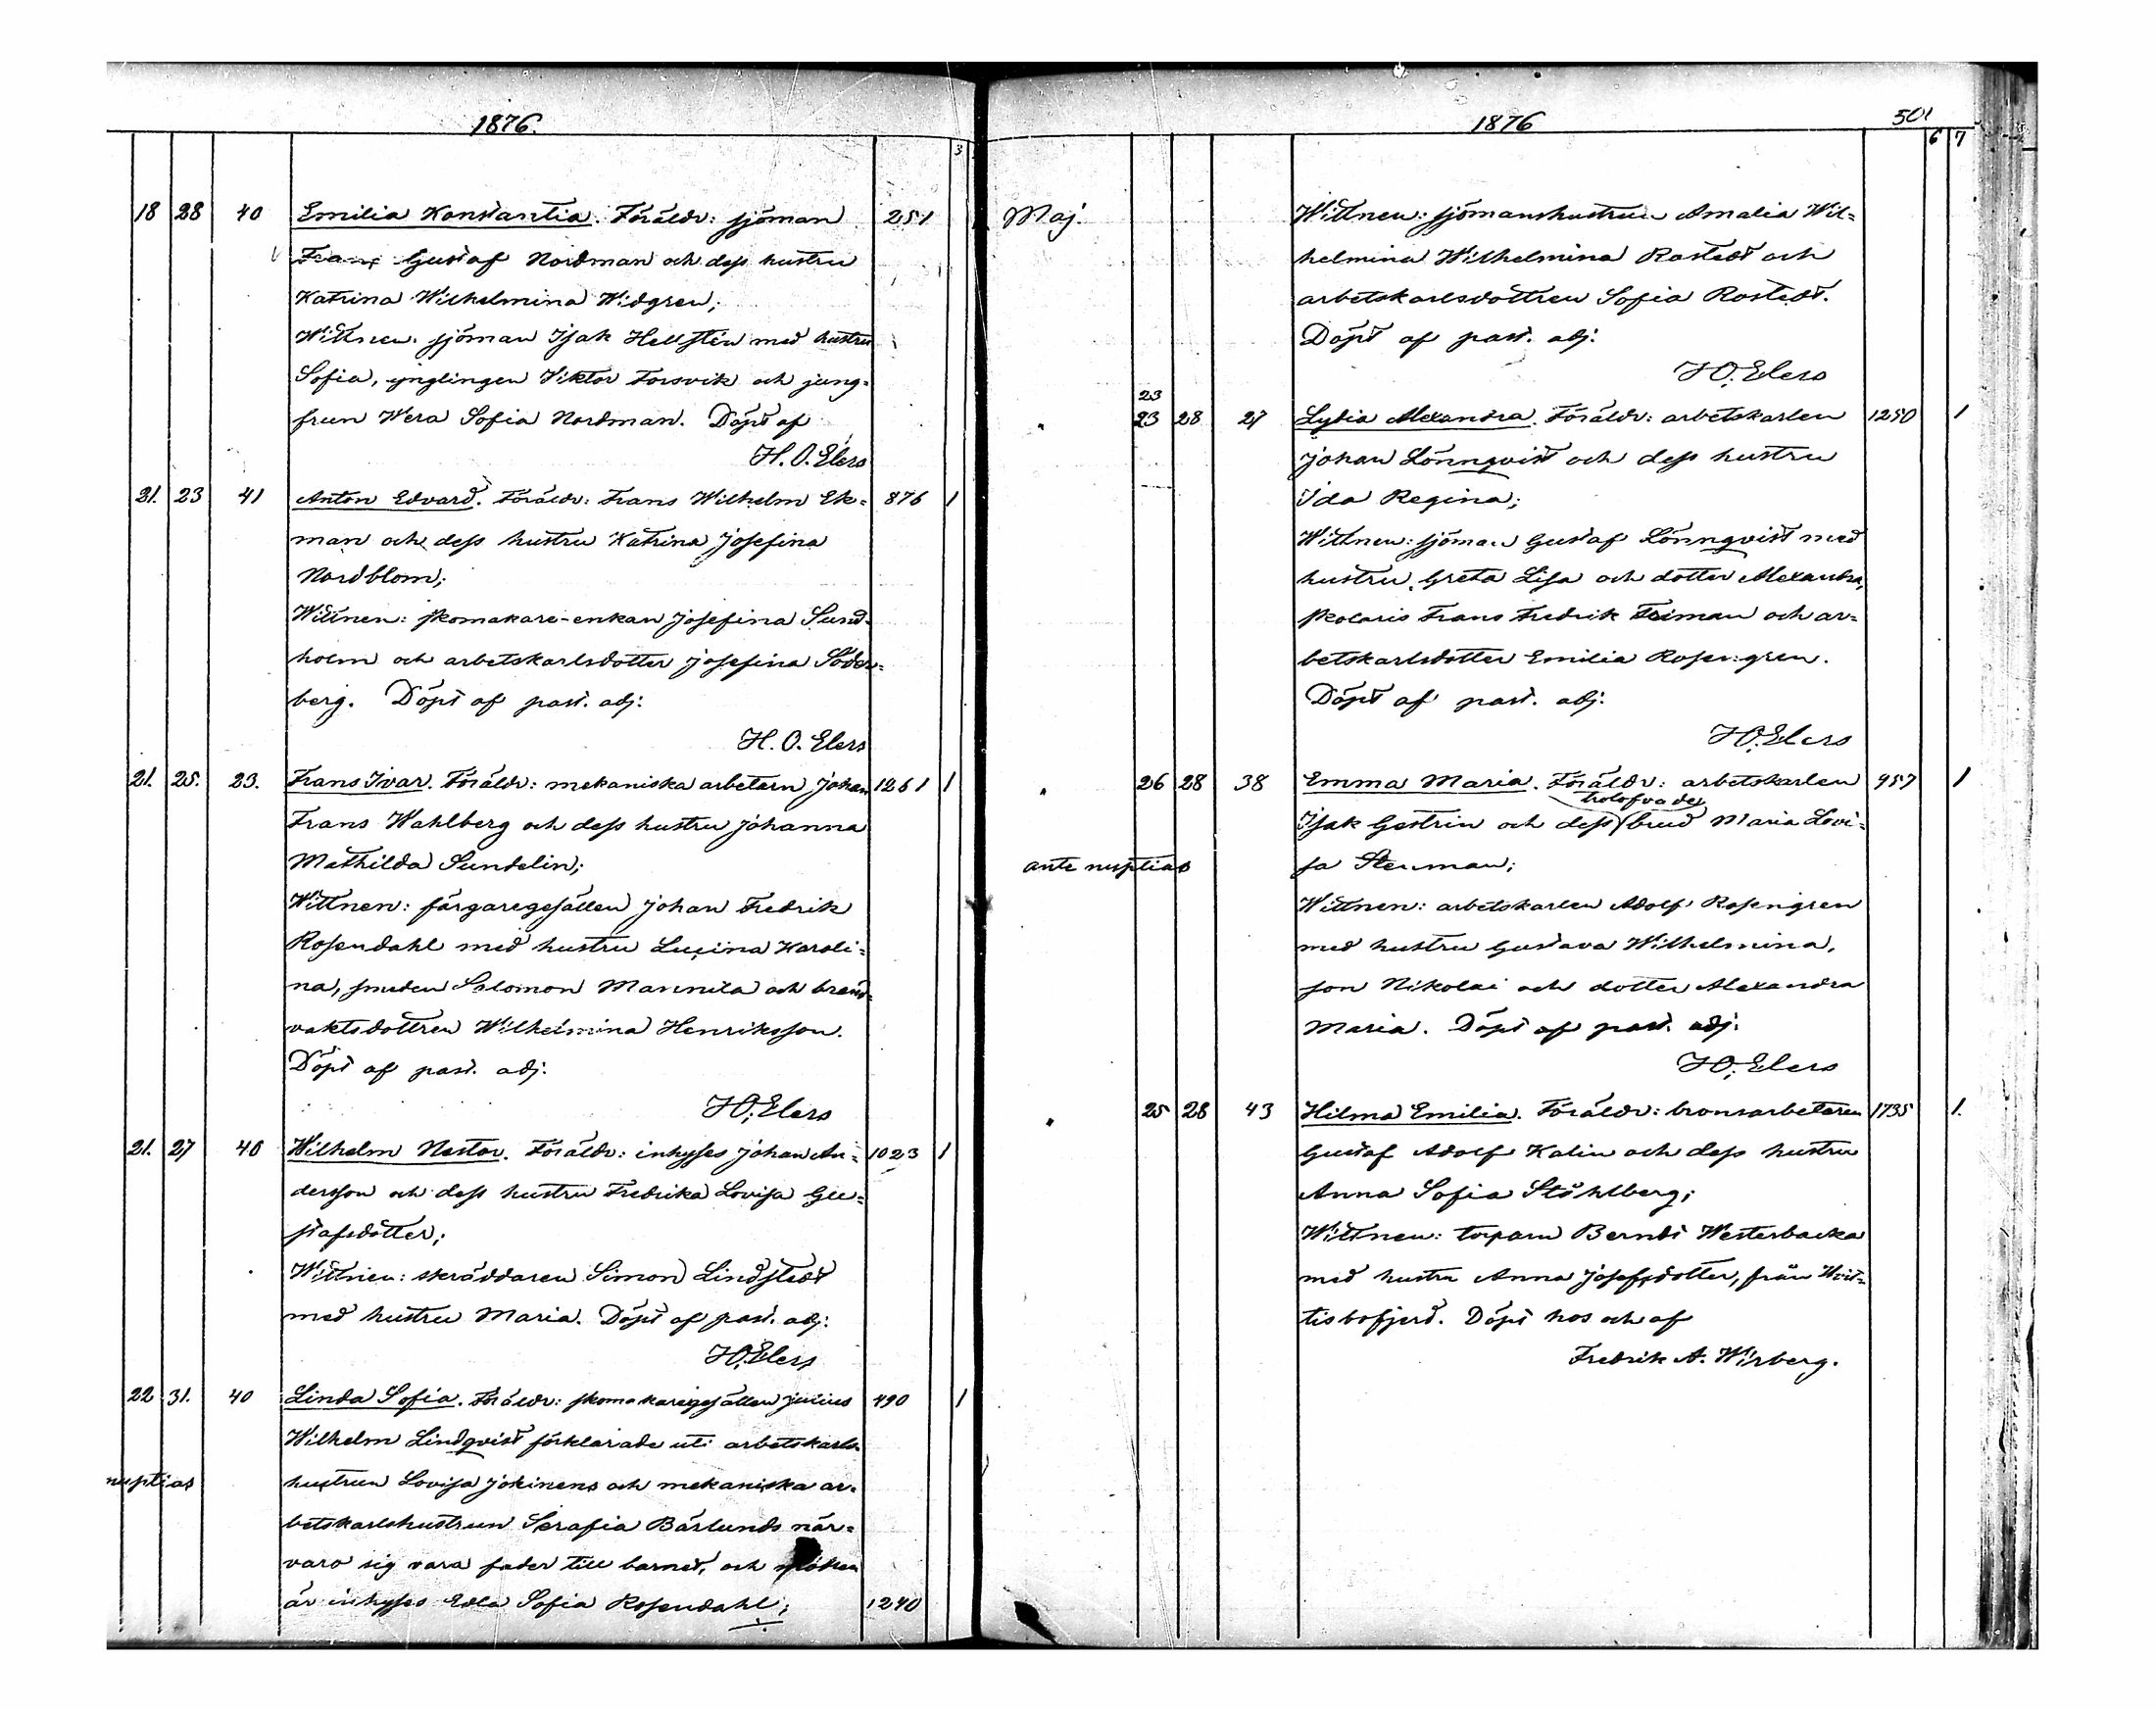 1876.
3
18 28 40 Emilia Konstantia. Föräldr: sjöman 251
Frans Gustaf Nordman och dess hustru
Katrina Wilhelmina Widgren;
Wittnen: sjöman Isak Hellstén med hustru
Sofia, ynglingen Viktor Forsvik och jung-
frun Wera Sofia Nordman. Döpt af
H. O. Elers
21. 23 41 Anton Edvard. Föräldr: Frans Wilhelm Ek- 876 1
man och dess hustru Katrina Josefina
Nordblom;
Wittnen: skomakare-enkan Josefina Sund-
holm och arbetskarlsdotter Josefina Söder-
berg. Döpt af past. adj:
H. O. Elers
21. 25. 23. Frans Ivar. Föräldr: mekaniska arbetarn Johan 1261 1
Frans Wahlberg och dess hustru Johanna
Mathilda Sundelin;
Wittnen: färgaregesällen Johan Fredrik
Rosendahl med hustru Lucina Karoli-
na, smeden Salomon Mannila och brand-
vaktsdottren Wilhelmina Henriksson.
Döpt af past. adj:
H.O. Elers
21. 27 40 Wilhelm Nestor. Föräldr: inhyses Johan An- 1023 1
dersson och dess hustru Fredrika Lovisa Gu-
stafsdotter;
Wittnen: skräddaren Simon Lindstedt
med hustru Maria. Döpt af past. adj:
H.O. Elers
22 31. 40 Linda Sofia. Föräldr: skomakaregesällen Julius 490 1
Wilhelm Lindqvist förklarade uti arbetskarls-
nuptias hustrun Lovisa Jokinens och mekaniska ar-
betskarlshustrun Serafia Bärlunds när-
varo sig vara fader till barnet, och modren
är inhyses Edla Sofia Rosendahl; 1240
1876 501
6 7
Maj. Wittnen: sjömanshustrun Amalia Wil-
helmina Wilhelmina Rostedt och
arbetskarlsdottren Sofia Rostedt.
Döpt af past. adj:
H.O. Elers
23
23 28 27 Lydia Alexandra. Föräldr: arbetskarlen 1250 1
Johan Lönnqvist och dess hustru
Ida Regina;
Wittnen: sjöman Gustaf Lönnqvist med
hustru Greta Lisa och dotter Alexandra,
skolaris Frans Fredrik Friman och ar-
betskarlsdotter Emilia Rosengren.
Döpt af past. adj.
H.O. Elers
26 28 38 Emma Maria. Föräldr: arbetskarlen 957 1
trolofvade
Isak Gestrin och dess brud Maria Lovi-
ante nuptias sa Stenman;
Wittnen: arbetskarlen Adolf Rosengren
med hustru Gustava Wilhelmina,
son Nikolai och dotter Alexandra
Maria. Döpt af past. adj.
H.O. Elers
25 28 43 Hilma Emilia. Föräldr: bronsarbetaren 1735 1.
Gustaf Adolf Kalin och dess hustru
Anna Sofia Ståhlberg;
Wittnen: torparn Berndt Westerbacka
med hustru Anna Josefsdotter, från Hvit-
tisbofjerd. Döpt hos och af
Fredrik A. Wirberg.